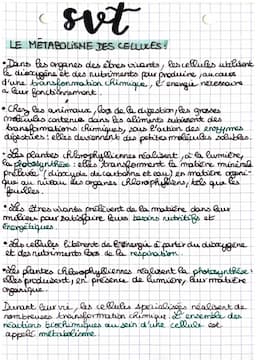 svt
LE MÉTABOLISME DES CELLULES :
• Dans les organes des êtres vivants, les cellules utilisent
le dioxygène et des nutriments pour produire, au cours
d'une transformation chimique, l'énergie nécessaire
à leur fonctionnement.
• Chez les animaux, lors de la digestion, les grosses
molécules contenues dans les aliments subissent des
transformations chimiques, sous l'action des enzymes
digestives : elles deviennent des petites molécules solubles.
• Les plantes chlorophylliennes réalisent, à la lumière,
la photosynthèse : elles transforment la matière minérale
prélevée (dioxyde de carbone et eau) en matière organi-
que au niveau des organes chlorophylliens, tels que les
feuilles.
• Les êtres vivants prélèvent de la matière dans leur
milieu pour satisfaire leurs besoins nutritifs et
énergétiques.
• Les cellules libèrent de l'énergie à partir du dioxygène
et des nutriments lors de la respiration.
• Les plantes chlorophylliennes réalisent la photosynthèse :
elles produisent, en présence de lumière, leur matière
organique.
Durant leur vie, les cellules spécialisées réalisent de
nombreuses transformations chimiques. L'ensemble des
réactions biochimiques au sein d'une cellule est
appelé métabolisme.